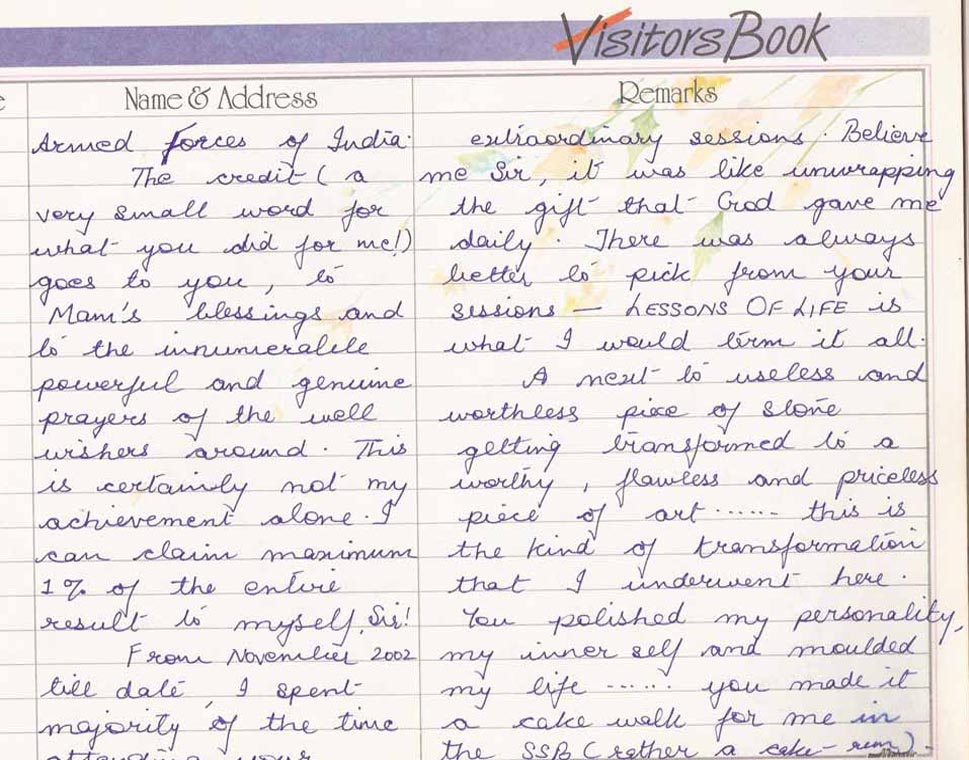 Visitors Book
Name & Address
Armed forces of India.
The credit ( a
very small word for
what you did for me!)
goes to you, to
Mam's blessings and
to the innumerable
powerful and genuine
prayers of the well
wishers around. This
is certainly not my
achievement alone. I
can claim maximum
1% of the entire
result to myself, Sir!
From November 2002
till date, I spent
majority of the time
attending your
Remarks
extraordinary sessions. Believe
me Sir, it was like unwrapping
the gift that God gave me
daily. There was always
better to pick from your
sessions — LESSONS OF LIFE is
what I would term it all.
A next to useless and
worthless piece of stone
getting transformed to a
worthy, flawless and priceless
piece of art ...... this is
the kind of transformation
that I underwent here.
You polished my personality,
my inner self and moulded
my life ...... you made it
a cake walk for me in
the SSB (rather a cake-run).